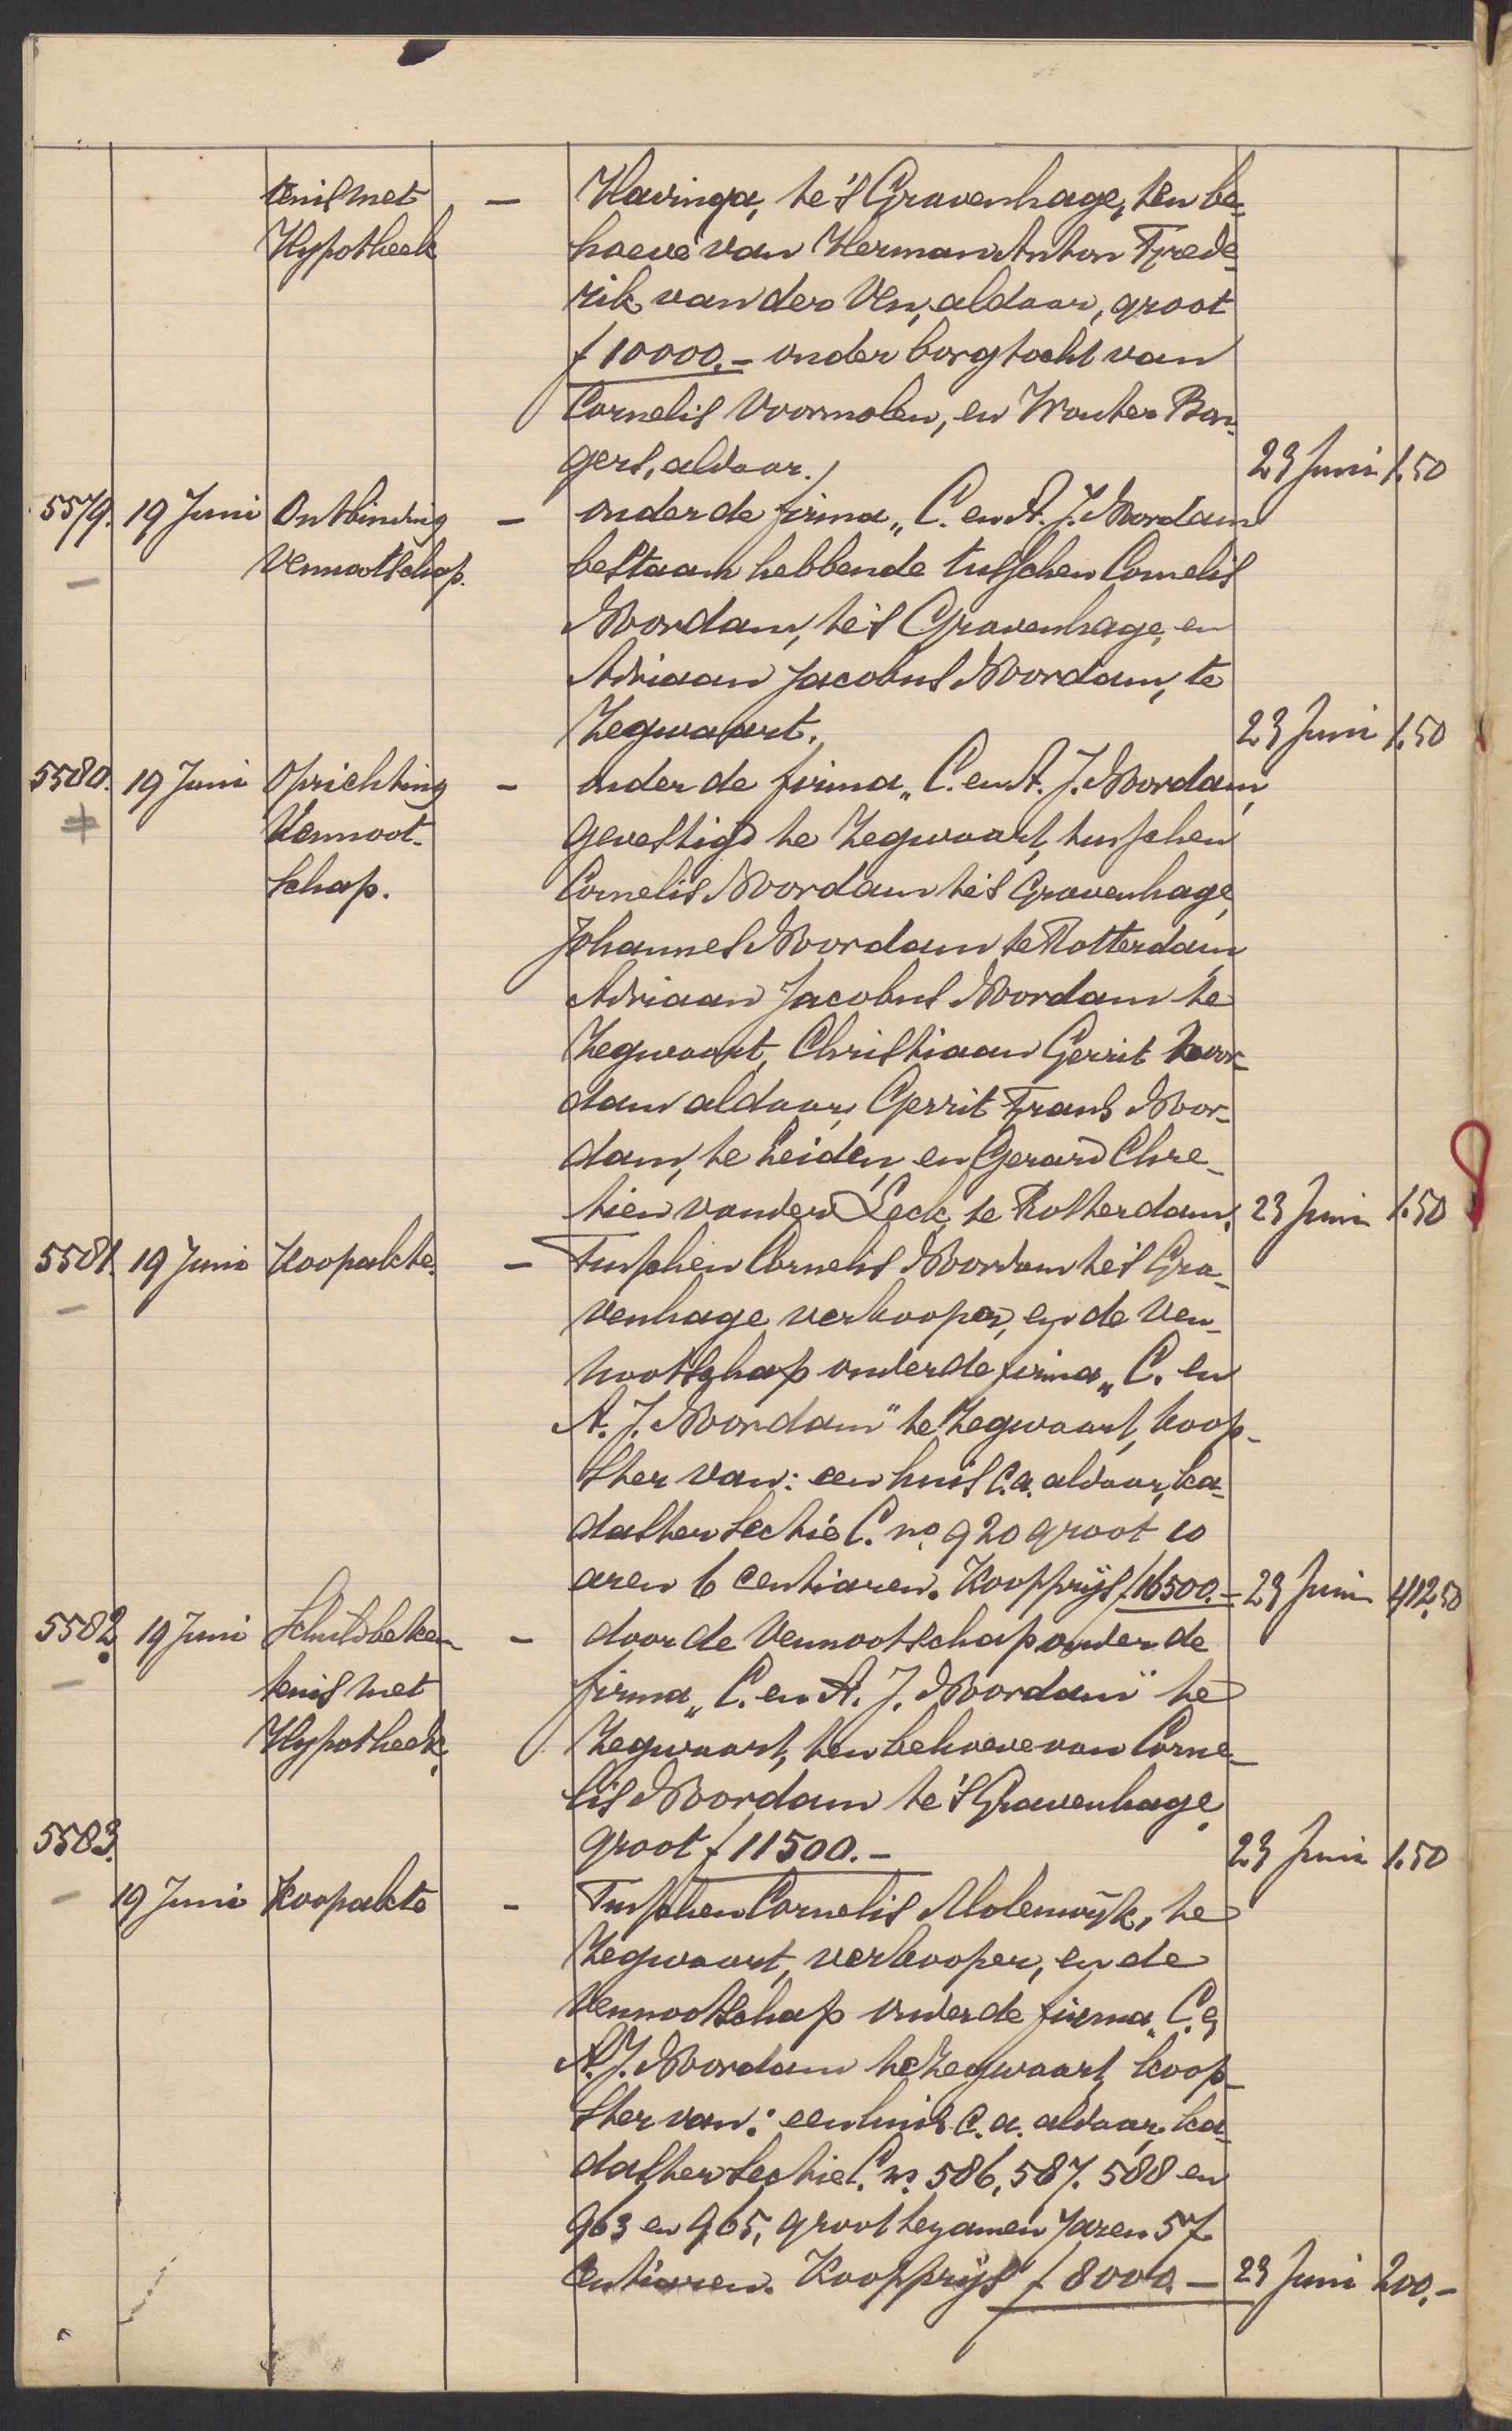 tenis met – Havinga, te 's Gravenhage, ten be-
Hypotheek hoeve van Herman Anton Frede-
rik van der Ven, aldaar, groot
f 10000.- onder borgtocht van
Cornelis Voormolen, en Wouter Bon-
gers, aldaar. 23 Juni 1.50
5579. 19 Juni Ontbinding – onder de firma „C. en A. J. Noordam
Vennootschap. bestaan hebbende tusschen Cornelis
Noordam, te 's Gravenhage, en
Adriaan Jacobus Noordam, te
Zegwaart. 23 Juni 1.50
5580. 19 Juni Oprichting – onder de firma „C. en A. J. Noordam,
Vennoot- gevestigd te Zegwaart, tusschen
schap. Cornelis Noordam te 's Gravenhage,
Johannes Noordam te Rotterdam,
Adriaan Jacobus Noordam te
Zegwaart, Christiaan Gerrit Noor-
dam aldaar, Gerrit Frans Noor-
dam, te Leiden, en Gerard Chre-
tien van der Leck, te Rotterdam. 23 Juni 1.50
5581. 19 Juni Koopakte. – Tusschen Cornelis Noordam te 's Gra-
venhage verkooper, en de Ven-
nootschap onder de firma „C. en
A. J. Noordam" te Zegwaart, koop-
ster van: een huis c.a. aldaar, ka-
daster Sectie C. no. 920 groot 10
aren 6 centiaren. Koopprijs f 16500.- 23 Juni 412.50
5582. 19 Juni Schuldbeken- – door de Vennootschap onder de
tenis met firma „C. en A. J. Noordam" te
Hypotheek. Zegwaart, ten behoeve van Corne-
lis Noordam te 's Gravenhage,
5583. groot f 11500.- 23 Juni 1.50
19 Juni Koopakte – Tusschen Cornelis Molenwijk, te
Zegwaart, verkooper, en de
Vennootschap onder de firma „C. en
A. J. Noordam te Zegwaart, koop-
ster van: een huis c.a. aldaar, ka-
daster Sectie C. no. 586, 587, 588 en
963 en 965, groot tezamen 7 aren 57
centiaren. Koopprijs f 8000.- 23 Juni 200.-